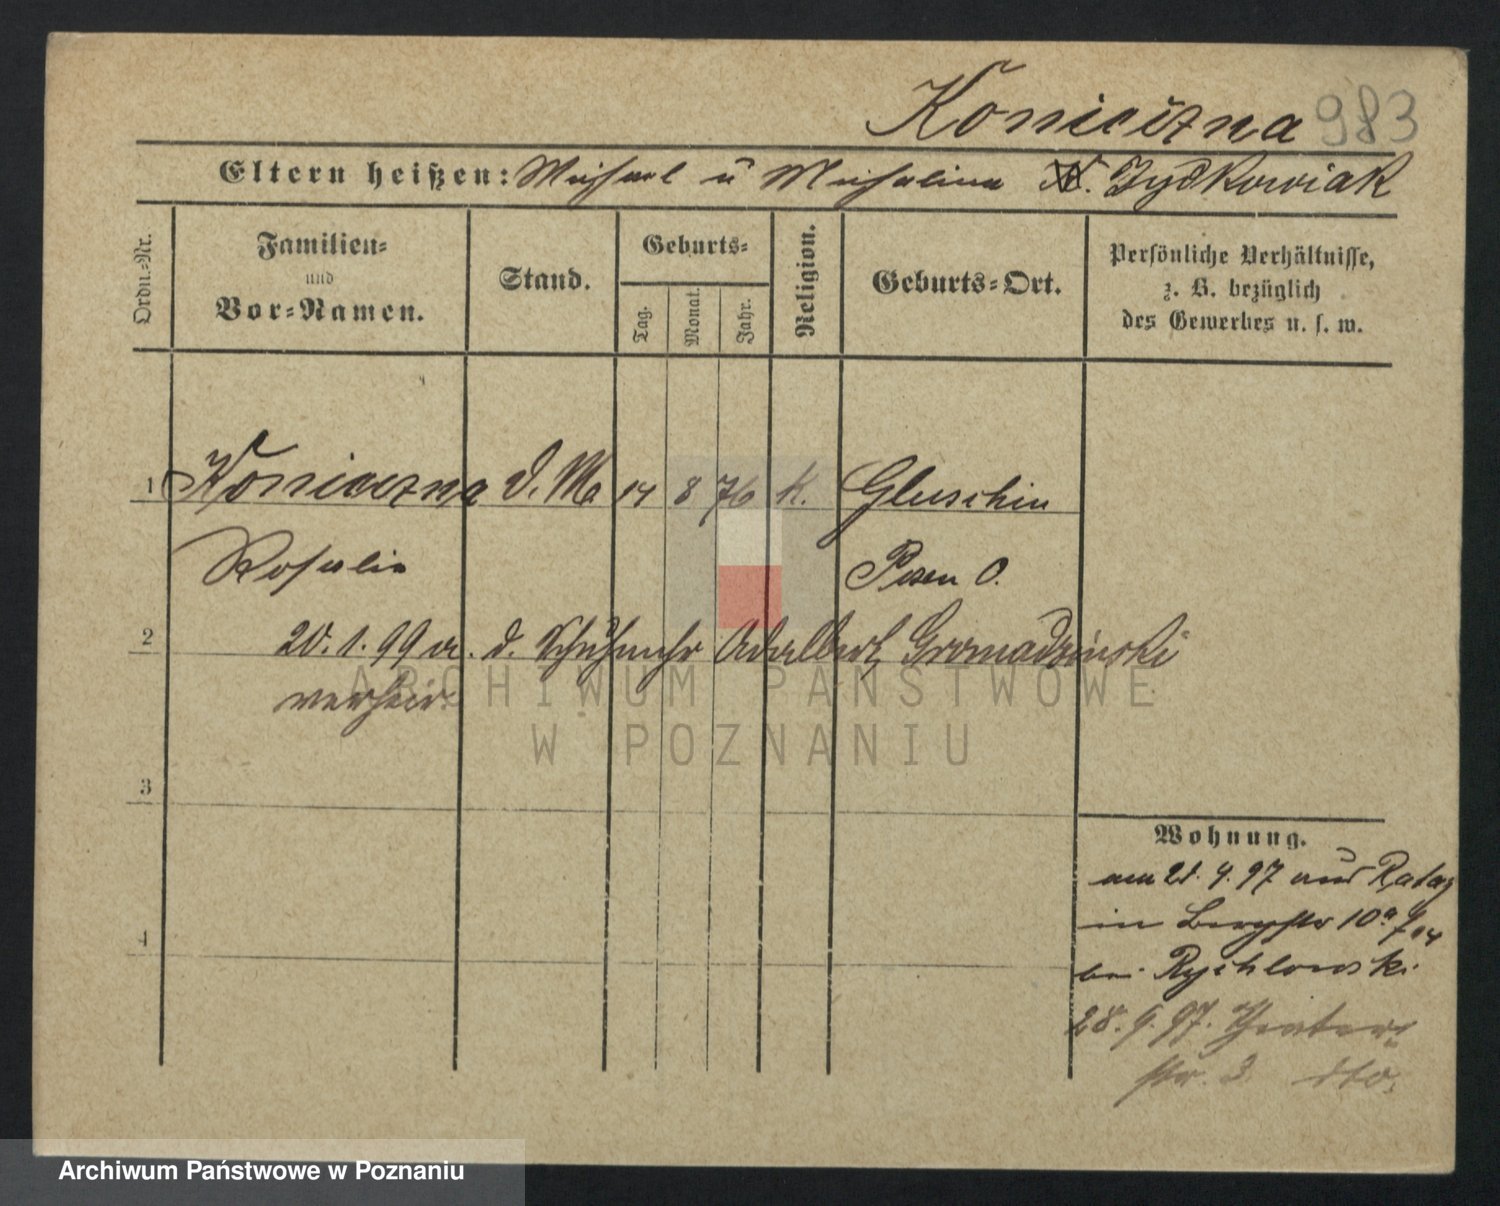 Koniczna 983
Eltern heißen: Michael u Michalina Dydkowiak
Ordn.-Nr.
Familien-
und
Vor-Namen.
Stand.
Geburts-
Tag.
Monat.
Jahr.
Religion.
Geburts-Ort.
Persönliche Verhältnisse,
z. B. bezüglich
des Gewerbes u. s. w.
1 Koniczna d. M. 14 8 76 k. Gluschin
Rosalie Posen O.
2 20. 1. 99 m. d. Schuhmchr Adalbert Gromadzinski
verheir.
ARCHIWUM PAŃSTWOWE
W POZNANIU
3
Wohnung.
am 21. 9. 97 aus Rataj
in Bergstr 10a
4
bei Rychlowski
28. 9. 97. Theater
str. 3. dto.
Archiwum Państwowe w Poznaniu